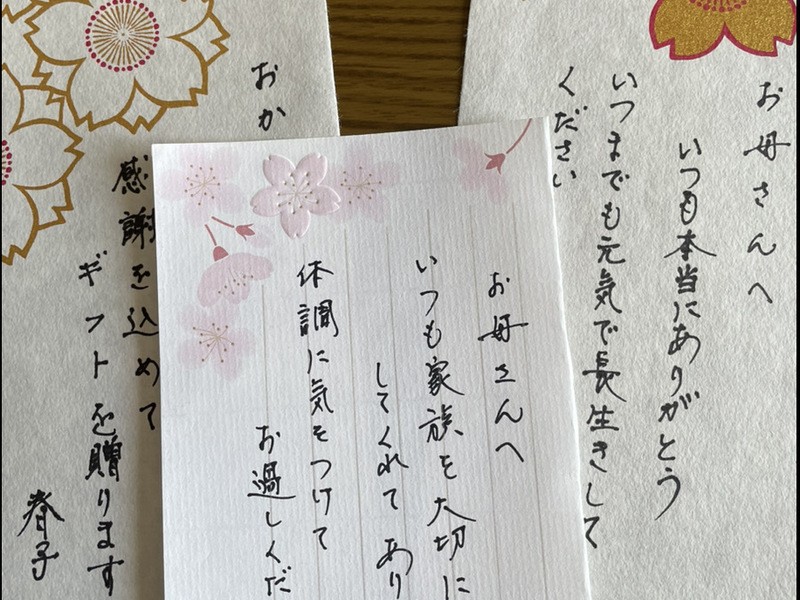 お母さんへ
いつも本当にありがとう
いつまでも元気で長生きして
ください
お母さんへ
いつも家族を大切に
してくれてあり
体調に気をつけて
お過しくだ
おか
感謝を込めて
ギフトを贈ります
春子